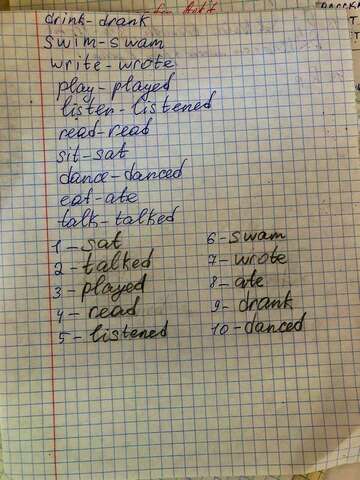 drink-drank
swim-swam
write-wrote
play-played
listen-listened
read-read
sit-sat
dance-danced
eat-ate
talk-talked
1-sat
2-talked
3-played
4-read
5-listened
6-swam
7-wrote
8-ate
9-drank
10-danced